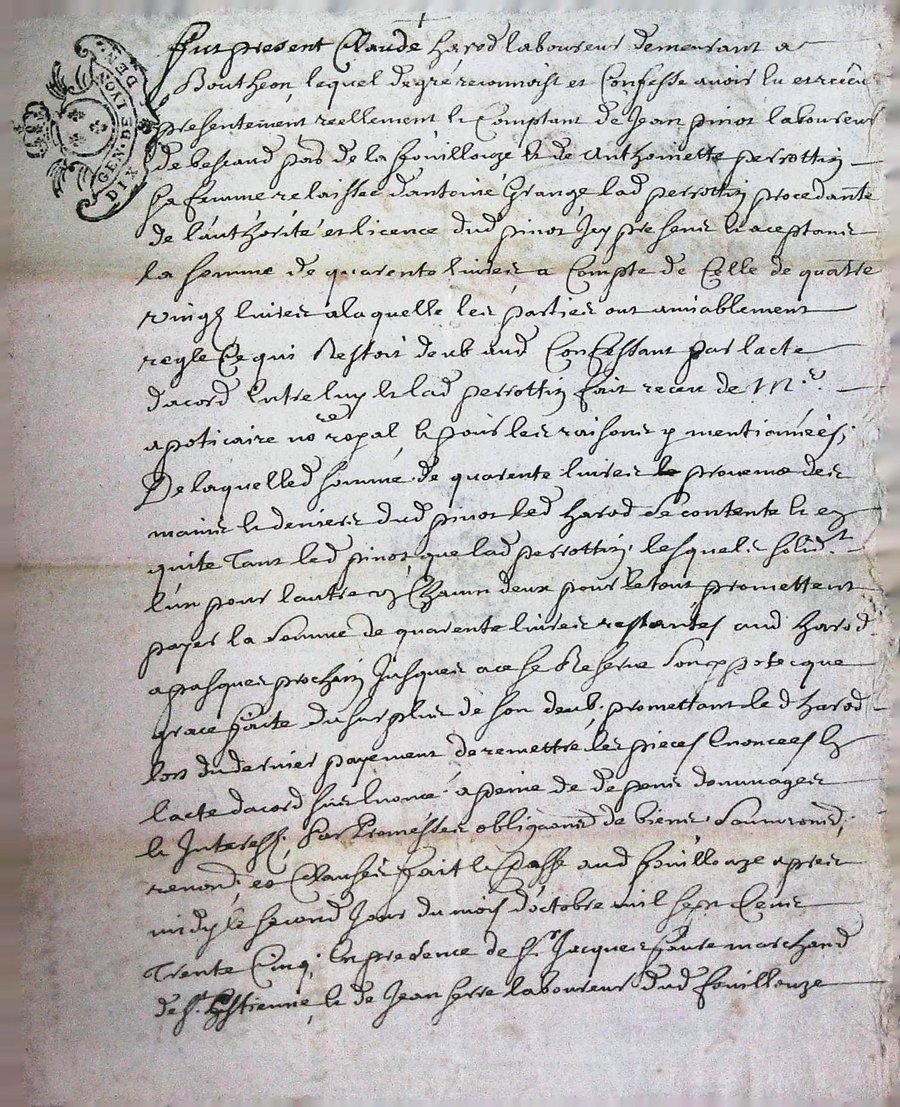 GEN. DE LYON
DIX DEN
Fut present Claude harod laboureur demeurant a
Boutheon, lequel de gré reconnoist et Confesse avoir eu et receu
presentement reellement et Comptant de Jean pinot laboureur
de pars de la fouillouze et de Anthoinette perrottin
sa femme relaissée d'antoine Grange lad perrottin procedante
de l'authorité et licence dud pinot Icy presens et aceptans
la somme de quarente livres a Compte de Celle de quatre
vingt livres a laquelle les parties ont amiablement
regle Ce qui Restoit deub aud Confessant par lacte
dacord Entre luy et lad perrottin fait receu de Mr
apoticaire no.re royal et pour les raisons y mentionnées;
De laquelled somme de quarente livres provenue des
mains et deniers dud pinot led harod se contente et en
quite Tant led pinot que lad perrottin, lesquels solid.t
l'un pour lautre et Chacun deux pour le tout promettent
payer la somme de quarente livres restantes aud harod
a pasques prochain Jusques a ce se Reserve son ypotecque
grace faite du surplus de son deub, promettant le d harod
lors du dernier payement de remettre les pieces Enoncees En
lacte dacord sus Enoncé a peine de depens dommages
et Interests, par Promesses obligaons de biens Soumons,
renonons et Clauses fait et Passe aud fouillouze apres
midy le second Jour du mois d'octobre mil sept Cens
Trente Cinq, En presence de Sr. Jacques faure marchand
de St. Estienne, et de Jean serre laboureur dud fouillouze